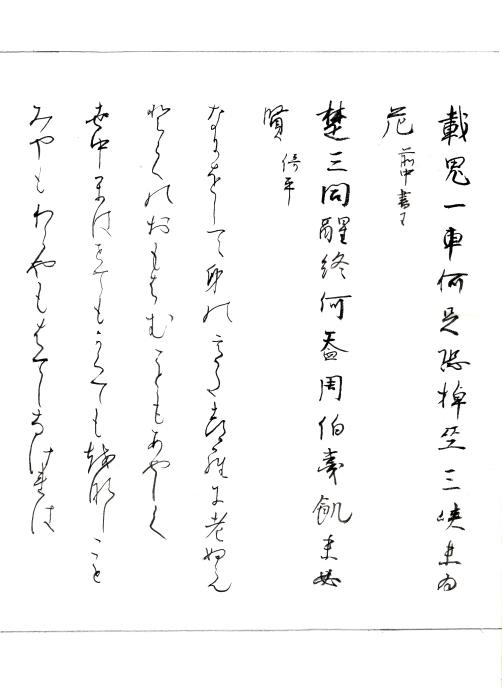 載鬼一車何足恐棹巫三峡未為
危 前中書王
楚三閭醒終何益周伯夷飢未必
賢 倚平
なにをして身のいたつらに老ぬらん
としのおもはむこともあやしく
世中はとてもかくてもおなしこと
みやもわらやもはてしなけれは